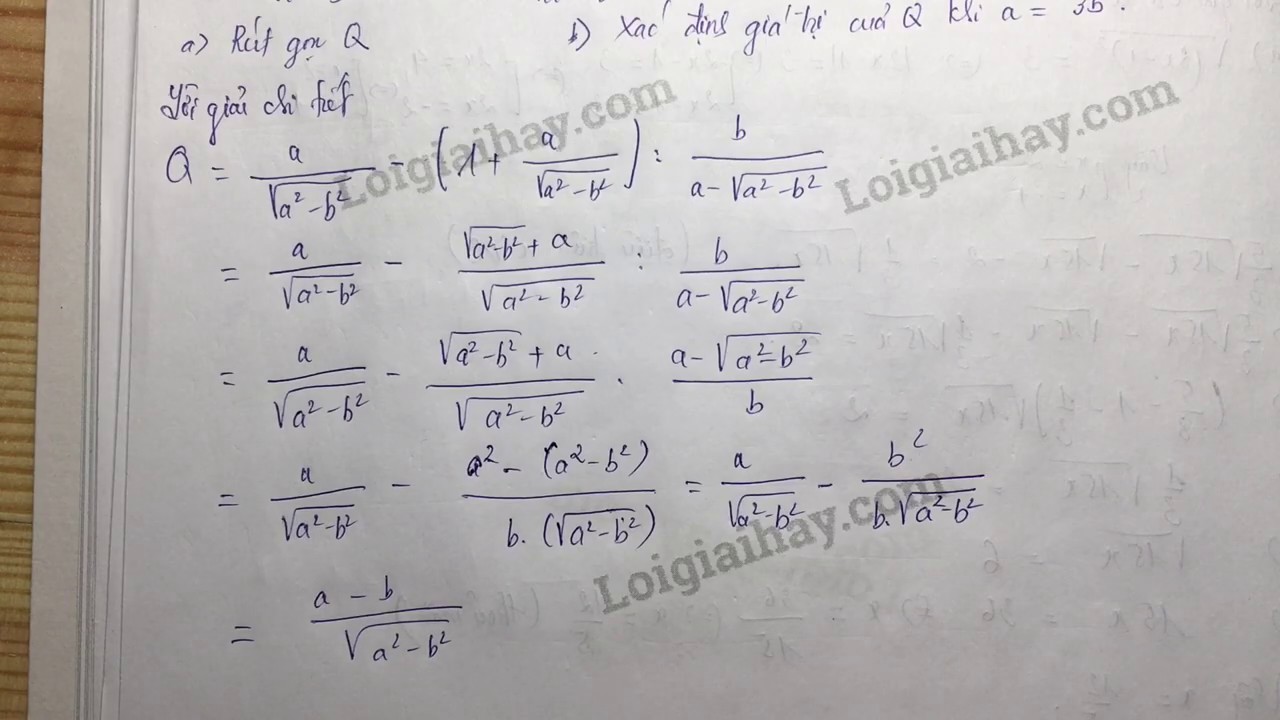 a) Rút gọn Q b) Xác định giá trị của Q khi a = 3b.
Lời giải chi tiết
Q = a/√(a² − b²) − (1 + a/√(a² − b²)) : b/(a − √(a² − b²))
= a/√(a² − b²) − (√(a² − b²) + a)/√(a² − b²) : b/(a − √(a² − b²))
= a/√(a² − b²) − (√(a² − b²) + a)/√(a² − b²) . (a − √(a² − b²))/b
= a/√(a² − b²) − (a² − (a² − b²))/(b.(√(a² − b²))) = a/√(a² − b²) − b²/(b.√(a² − b²))
= (a − b)/√(a² − b²)
Loigiaihay.com
Loigiaihay.com
Loigiaihay.com